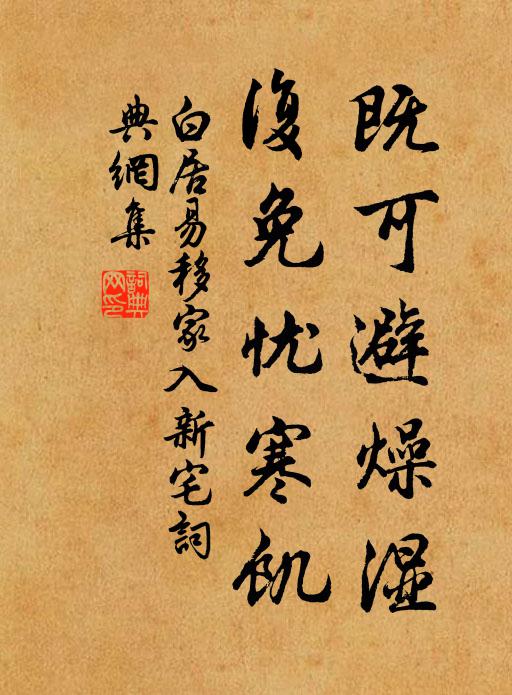 既可避燥湿
復免忧寒飢
白居易移家入新宅詞
典網集
詞典網印